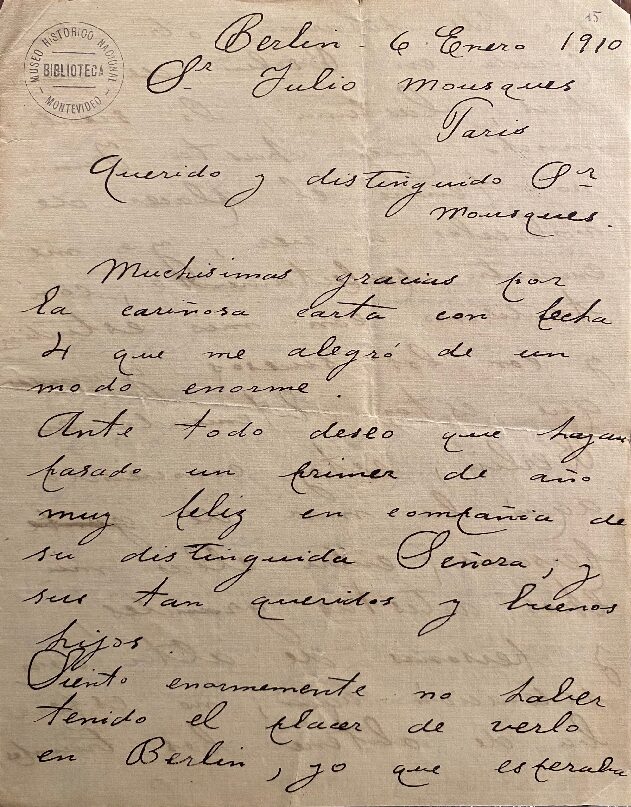 15
MUSEO HISTÓRICO NACIONAL
BIBLIOTECA
MONTEVIDEO
Berlin - 6 Enero 1910
Sr Julio Mousques
Paris
Querido y distinguido Sr
Mousques.
Muchisimas gracias por
la cariñosa carta con fecha
4 que me alegró de un
modo enorme.
Ante todo deseo que hayan
pasado un primer de año
muy feliz en compañia de
su distinguida Señora; y
sus tan queridos y buenos
hijos
Siento enormemente no haber
tenido el placer de verlo
en Berlin, yo que esperaba